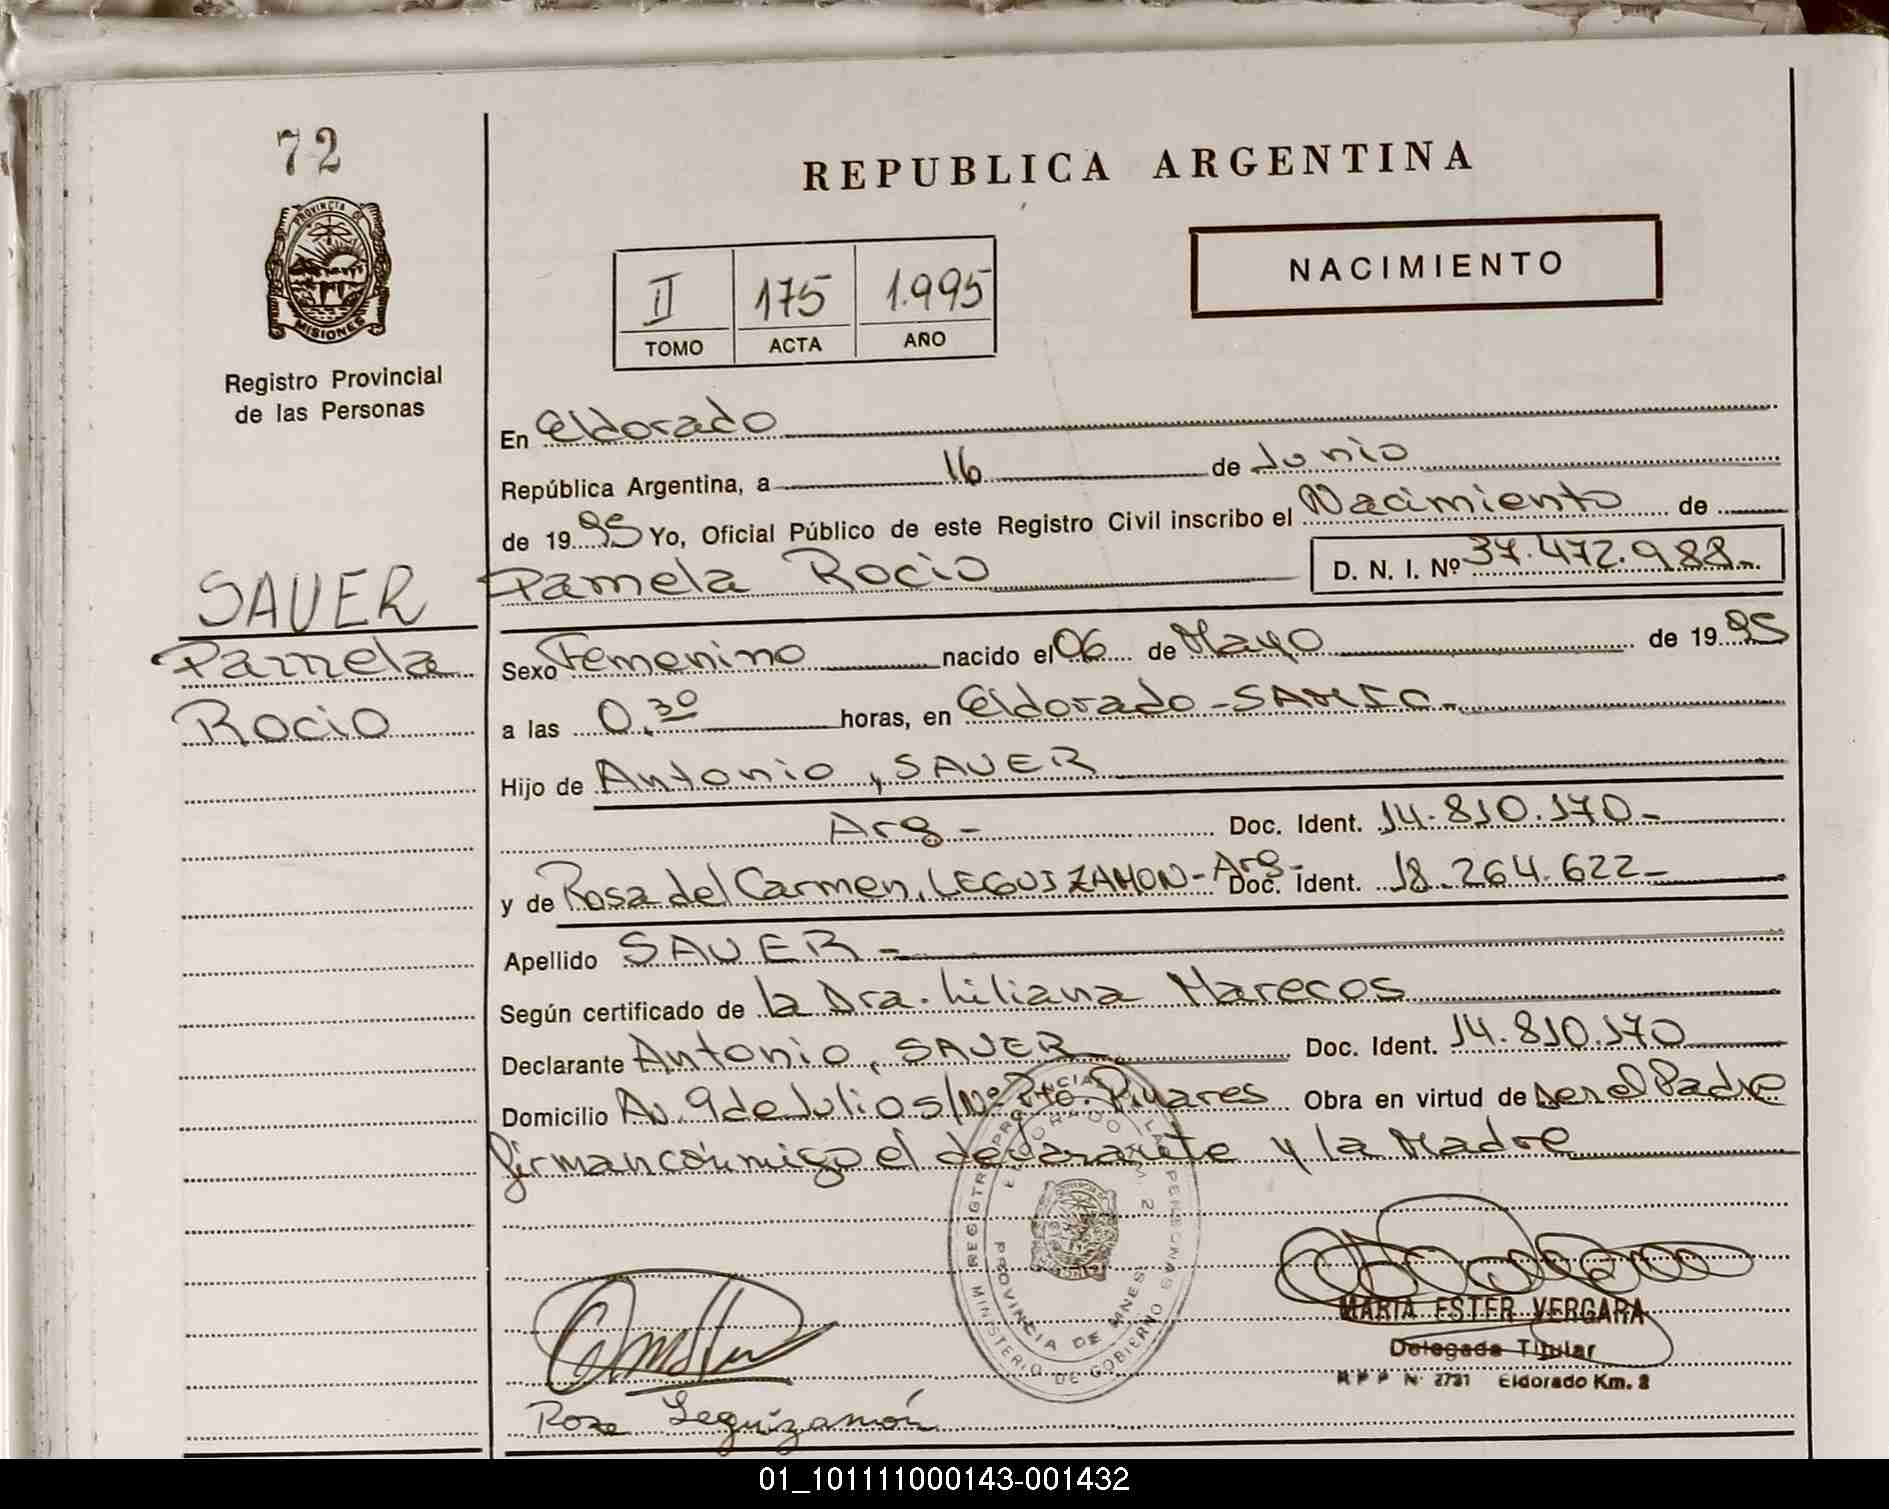 72
PROVINCIA DE
MISIONES
Registro Provincial
de las Personas
SAUER
Pamela
Rocio
REPUBLICA ARGENTINA
NACIMIENTO
II 175 1.995
TOMO ACTA AÑO
En Eldorado
República Argentina, a 16 de Junio
de 1995 Yo, Oficial Público de este Registro Civil inscribo el Nacimiento de
Pamela Rocio D. N. I. Nº 37.472.988-
Sexo Femenino nacido el 06 de Mayo de 1995
a las 0,30 horas, en Eldorado - SAMIC-
Hijo de Antonio, SAUER
Arg - Doc. Ident. 14.810.170-
y de Rosa del Carmen, LEGUIZAMON - Arg - Doc. Ident. 18.264.622-
Apellido SAUER -
Según certificado de la Dra. Liliana Marecos
Declarante Antonio, SAUER Doc. Ident. 14.810.170
Domicilio Av. 9 de Julio s/Nº Pto. Pinares Obra en virtud de ser el Padre
firman conmigo el declarante y la Madre
REGISTRO PROVINCIAL DE LAS PERSONAS
ELDORADO KM 2
PROVINCIA DE MNES
MINISTERIO DE GOBIERNO
MARIA ESTER VERGARA
Delegada Titular
R P P Nº 2731 Eldorado Km. 2
Rosa Leguizamón
01_101111000143-001432